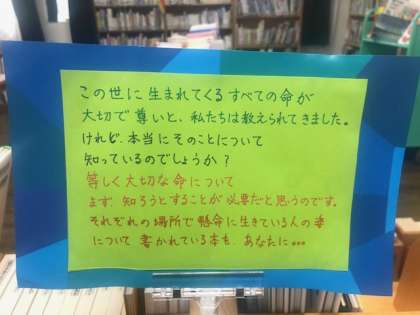 この世に生まれてくるすべての命が
大切で尊いと、私たちは教えられてきました。
けれど、本当にそのことについて
知っているのでしょうか？
等しく大切な命について
まず、知ろうとすることが必要だと思うのです。
それぞれの場所で懸命に生きている人の姿
について書かれている本を、あなたに…